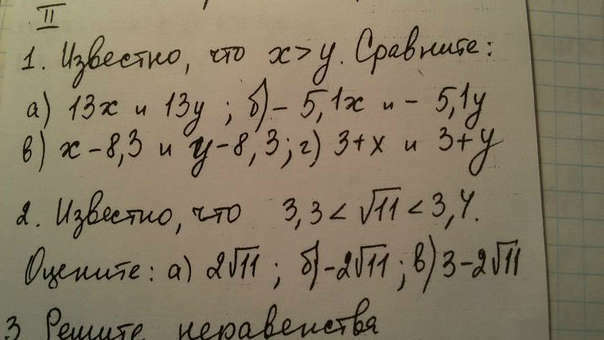 II
1. Известно, что x>y. Сравните:
а) 13x и 13y ; б) - 5,1x и - 5,1y
в) x - 8,3 и y - 8,3; г) 3+x и 3+y
2. Известно, что 3,3 < √11 < 3,4.
Оцените: а) 2√11 ; б) -2√11 ; в) 3-2√11
3 Решите неравенства